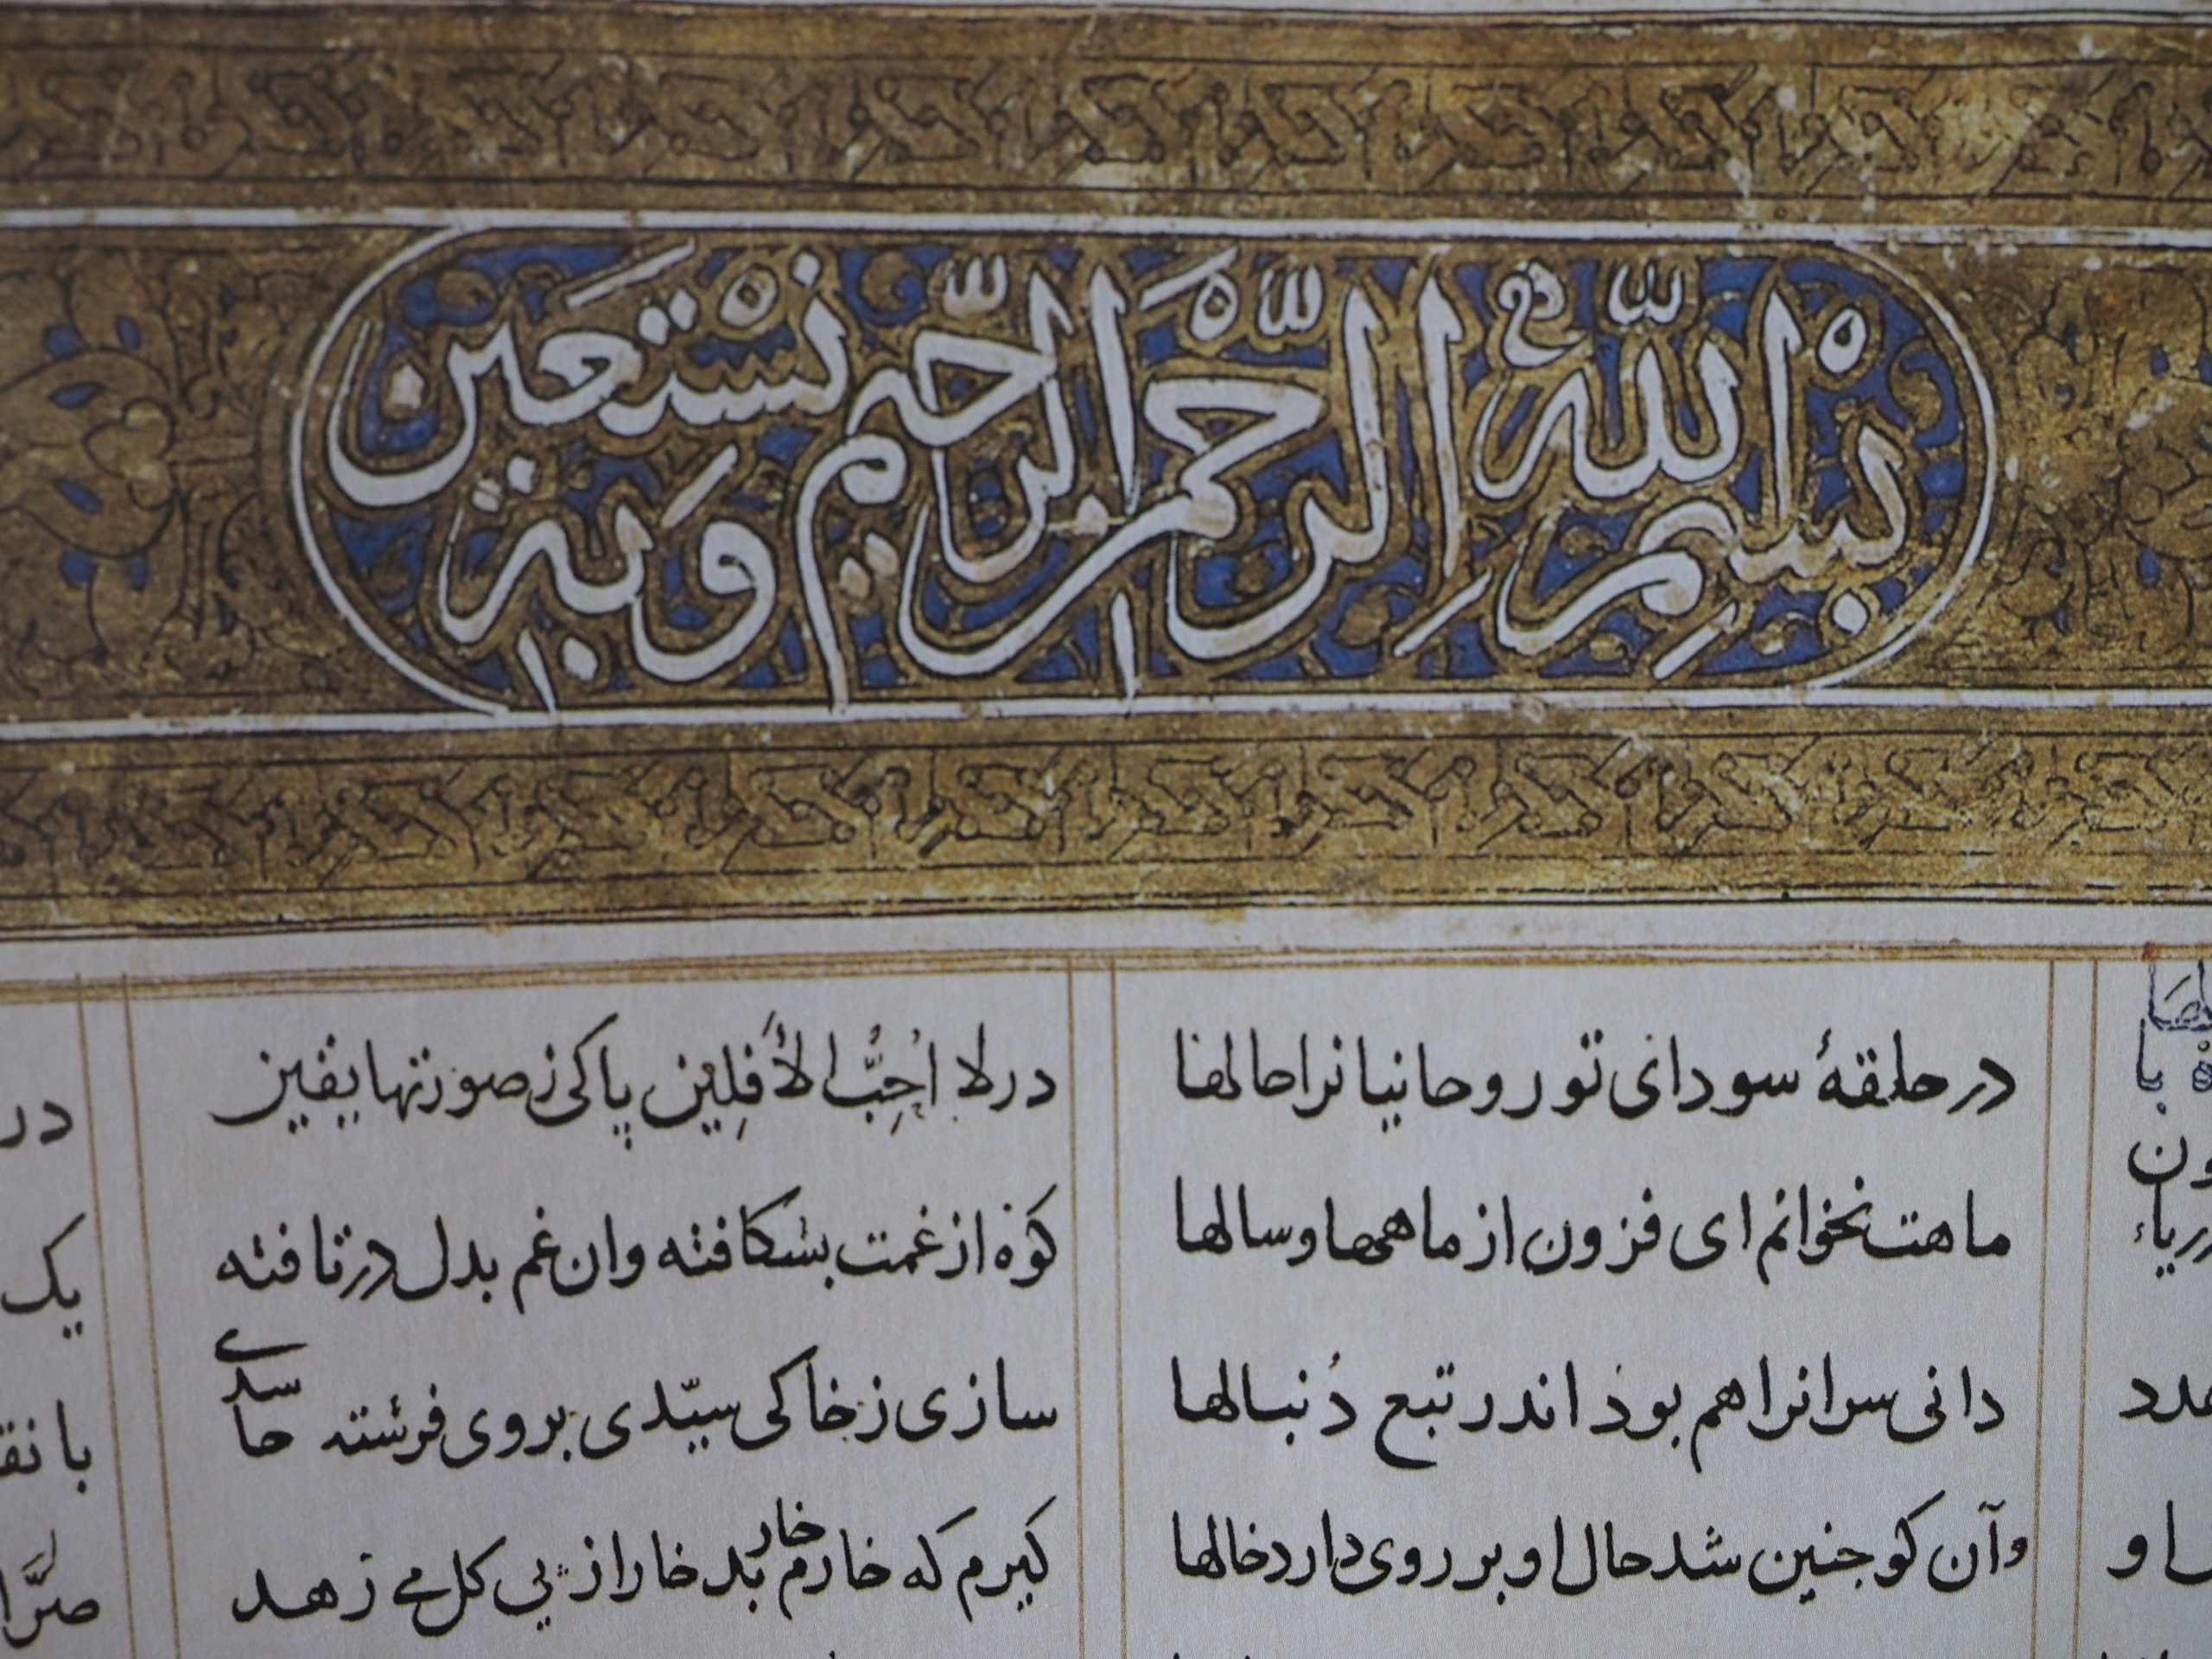 بسم الله الرحمن الرحیم وبه نستعین
در حلقهٔ سودای تو روحانیانرا حالها
در لا اُحِبُّ الأفلِین پاکی ز صورتها یقین
ماهت نخوانم ای فزون از ماهمها وسالها
کوه از غمت بشکافته وان غم بدل درتافته
دانی سرانرا هم بوذ اندر تبع دُنبالها
سازی ز خاکی سیّدی بروی فرشته حاسدی
وآن کو جنین شد حال او بر روی دارد خالها
کیرم که خارم خار بد خار از پی کل می زهد
در
یک
با نقد
صرّا
با
ون
او